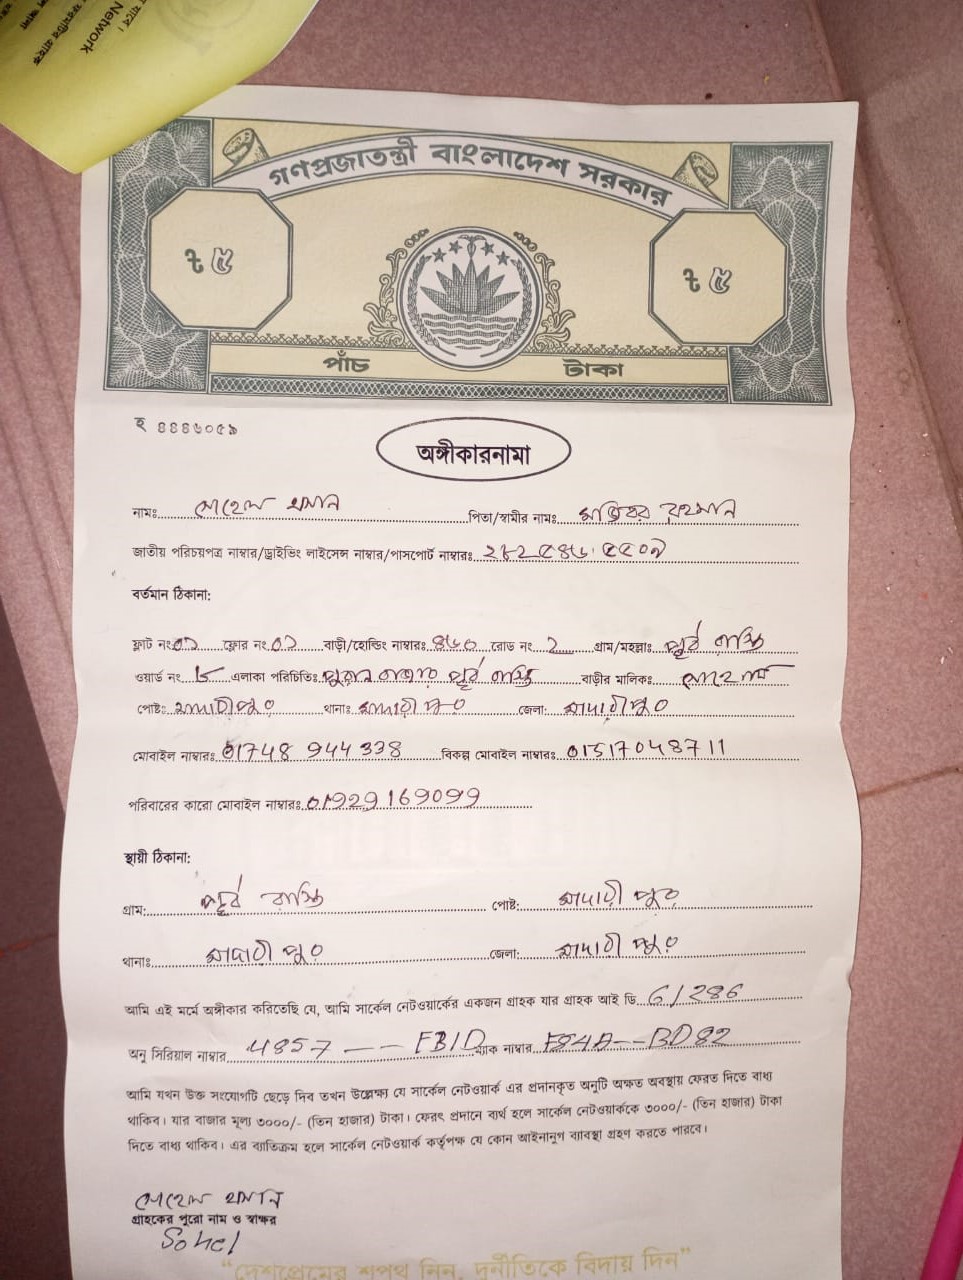 Network
গণপ্রজাতন্ত্রী বাংলাদেশ সরকার
৳ ৫ ৳ ৫
পাঁচ টাকা
হ ৪৪৪৬০৫৯
অঙ্গীকারনামা
নামঃ সোহেল পিতা/স্বামীর নামঃ রহমান
জাতীয় পরিচয়পত্র নাম্বার/ড্রাইভিং লাইসেন্স নাম্বার/পাসপোর্ট নাম্বারঃ
বর্তমান ঠিকানা:
ফ্লাট নং ফ্লোর নং বাড়ী/হোল্ডিং নাম্বারঃ ৪৬০ রোড নং ২ গ্রাম/মহল্লাঃ পূর্ব রাস্তি
ওয়ার্ড নং ৮ এলাকা পরিচিতিঃ পূর্ব রাস্তি বাড়ীর মালিকঃ সোহেল
পোষ্টঃ মাদারীপুর থানাঃ মাদারীপুর জেলা: মাদারীপুর
মোবাইল নাম্বারঃ 01748 944 338 বিকল্প মোবাইল নাম্বারঃ 01517048711
পরিবারের কারো মোবাইল নাম্বারঃ 01929169099
স্থায়ী ঠিকানা:
গ্রাম: পূর্ব রাস্তি পোষ্ট: মাদারীপুর
থানাঃ মাদারীপুর জেলা: মাদারীপুর
আমি এই মর্মে অঙ্গীকার করিতেছি যে, আমি সার্কেল নেটওয়ার্কের একজন গ্রাহক যার গ্রাহক আই ডি G/286
অনু সিরিয়াল নাম্বার 4857 -- FB1D ম্যাক নাম্বার F84A--BD82
আমি যখন উক্ত সংযোগটি ছেড়ে দিব তখন উল্লেক্ষ্য যে সার্কেল নেটওয়ার্ক এর প্রদানকৃত অনুটি অক্ষত অবস্থায় ফেরত দিতে বাধ্য
থাকিব। যার বাজার মূল্য ৩০০০/- (তিন হাজার) টাকা। ফেরৎ প্রদানে ব্যর্থ হলে সার্কেল নেটওয়ার্ককে ৩০০০/- (তিন হাজার) টাকা
দিতে বাধ্য থাকিব। এর ব্যতিক্রম হলে সার্কেল নেটওয়ার্ক কর্তৃপক্ষ যে কোন আইনানুগ ব্যবস্থা গ্রহণ করতে পারবে।
সোহেল
গ্রাহকের পুরো নাম ও স্বাক্ষর
Sohel
"দেশপ্রেমের শপথ নিন, দুর্নীতিকে বিদায় দিন"